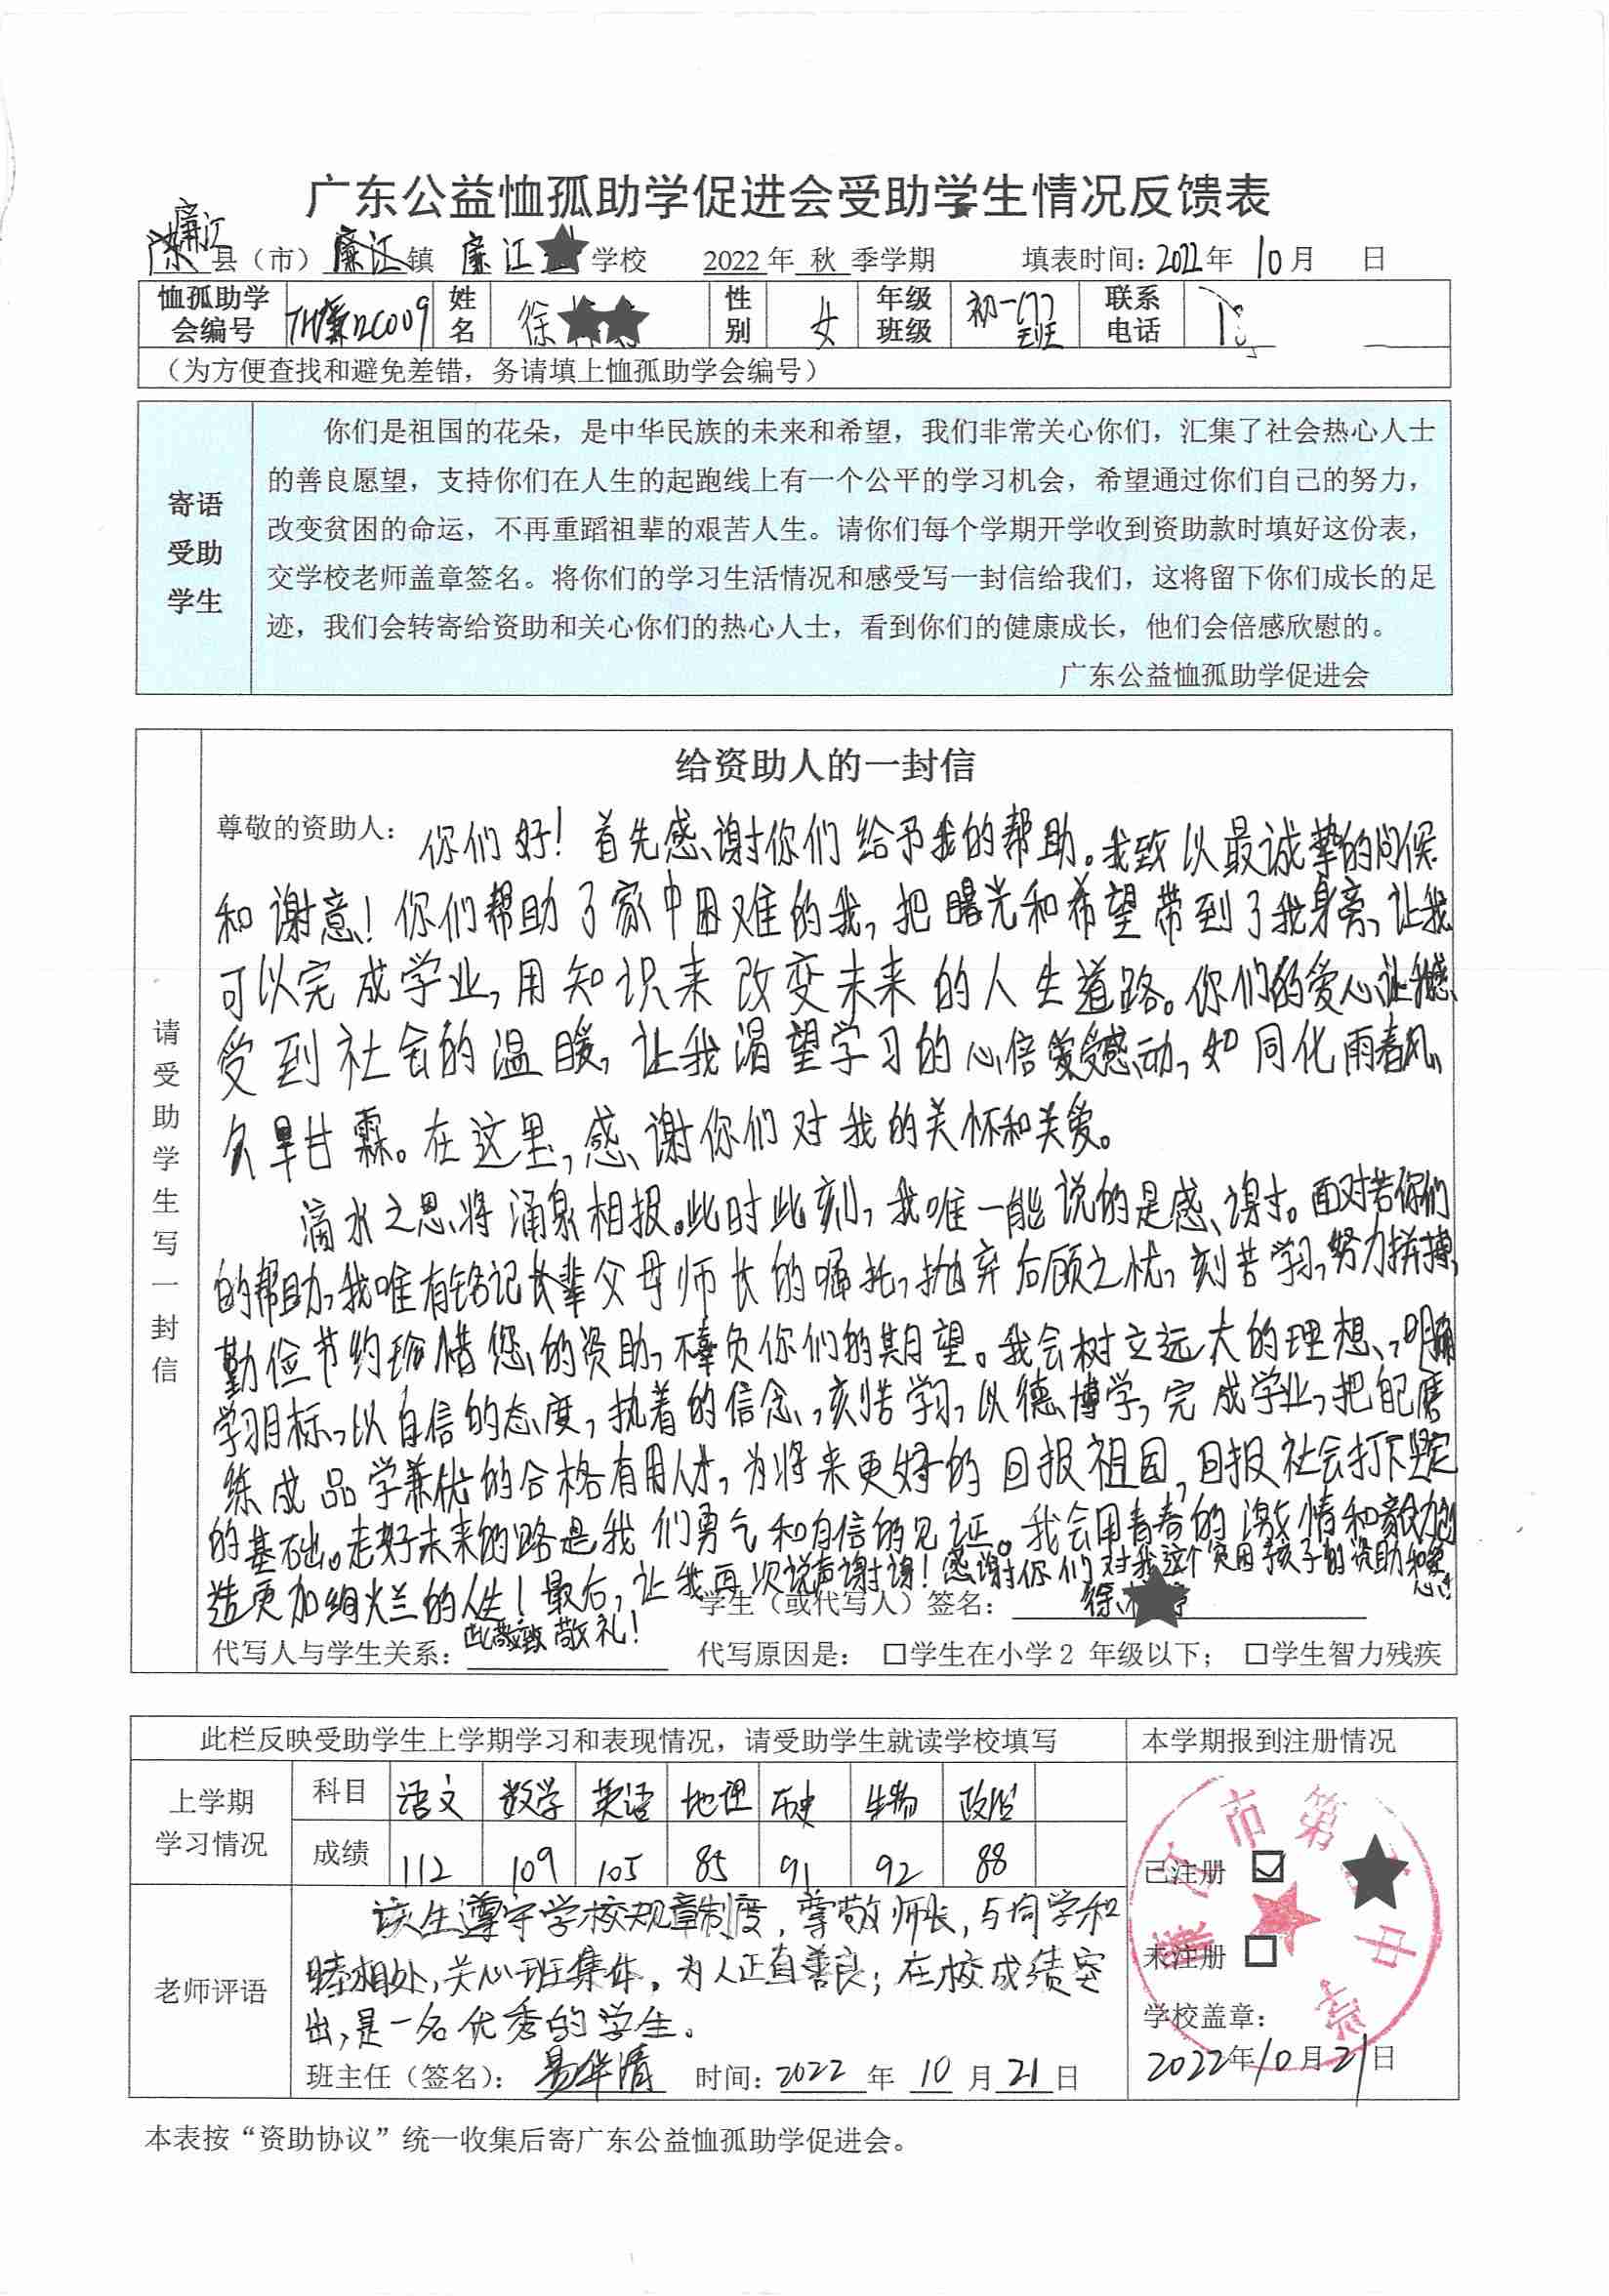 广东公益恤孤助学促进会受助学生情况反馈表
廉江县（市）廉江镇 廉江 学校 2022年 秋 季学期 填表时间：2022年 10月 日
恤孤助学会编号 TH廉2C009 姓名 徐 性别 女 年级班级 初一(7)班 联系电话
（为方便查找和避免差错，务请填上恤孤助学会编号）
寄语受助学生
你们是祖国的花朵，是中华民族的未来和希望，我们非常关心你们，汇集了社会热心人士
的善良愿望，支持你们在人生的起跑线上有一个公平的学习机会，希望通过你们自己的努力，
改变贫困的命运，不再重蹈祖辈的艰苦人生。请你们每个学期开学收到资助款时填好这份表，
交学校老师盖章签名。将你们的学习生活情况和感受写一封信给我们，这将留下你们成长的足
迹，我们会转寄给资助和关心你们的热心人士，看到你们的健康成长，他们会倍感欣慰的。
广东公益恤孤助学促进会
请受助学生写一封信
给资助人的一封信
尊敬的资助人：你们好！首先感谢你们给予我的帮助。我致以最诚挚的问候
和谢意！你们帮助了家中困难的我，把曙光和希望带到了我身旁，让我
可以完成学业，用知识来改变未来的人生道路。你们的爱心让我感
受到社会的温暖，让我渴望学习的心倍受感动，如同化雨春风，
久旱甘霖。在这里，感谢你们对我的关怀和关爱。
滴水之恩，将涌泉相报。此时此刻，我唯一能说的是感谢。面对着你们
的帮助，我唯有铭记长辈父母师长的嘱托，抛弃后顾之忧，刻苦学习，努力拼搏，
勤俭节约珍惜您的资助，不辜负你们的期望。我会树立远大的理想，明确
学习目标，以自信的态度，执着的信念，刻苦学习，以德博学，完成学业，把自己磨
练成品学兼优的合格有用人才，为将来更好的回报祖国，回报社会打下坚定
的基础。走好未来的路是我们勇气和自信的见证。我会用青春的激情和毅力创
造更加绚烂的人生！最后，让我再次说声谢谢！感谢你们对我这个贫困孩子的资助和
学生（或代写人）签名：徐
此致敬礼！
代写人与学生关系： 代写原因是： □学生在小学2 年级以下； □学生智力残疾
此栏反映受助学生上学期学习和表现情况，请受助学生就读学校填写 本学期报到注册情况
上学期学习情况
科目 语文 数学 英语 地理 历史 生物 政治
成绩 112 109 105 85 91 92 88
老师评语
该生遵守学校规章制度，尊敬师长，与同学和
睦相处，关心班集体，为人正直善良；在校成绩突
出，是一名优秀的学生。
班主任（签名）：易华清 时间：2022 年 10 月 21 日
已注册 ☑
未注册 □
学校盖章：
2022年10月21日
廉江市第 中学
本表按“资助协议”统一收集后寄广东公益恤孤助学促进会。